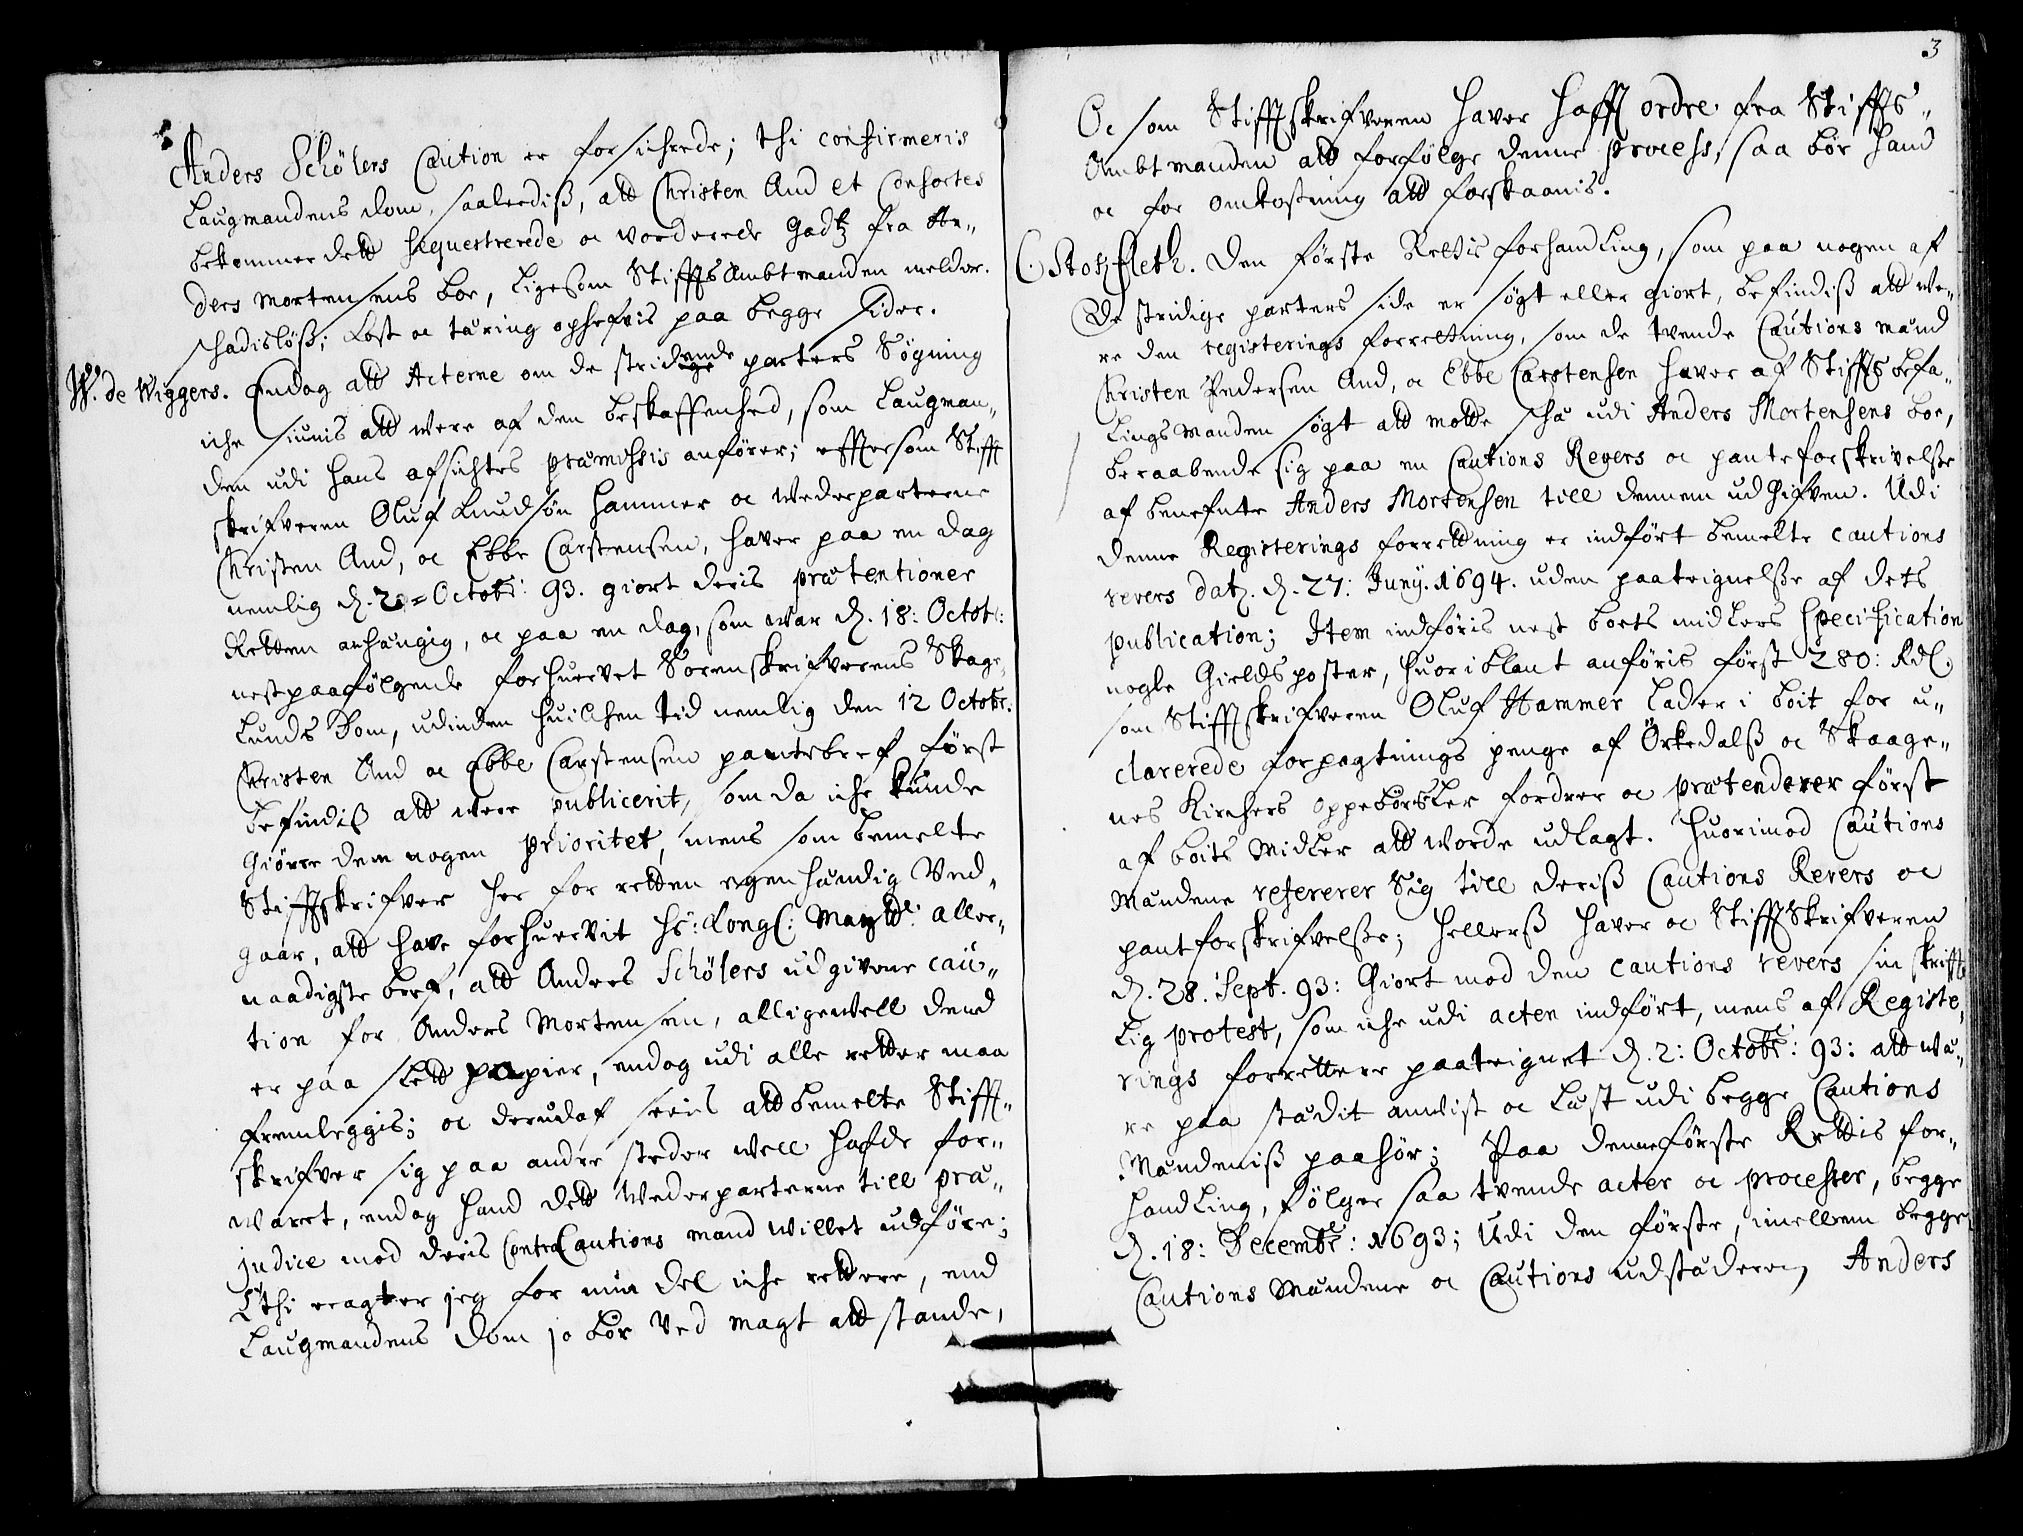 Anders Schölers Caution er forsichrede; thi confirmeris
Laugmandens dom, saaledis, att Christen And et Consortes
bekommer dett sequestrerede oc vorderede Gadtz fra An-
ders Mortensens boe, ligesom StifftsAmbtmanden melder.
schadisløs; Kost oc tæring ophefvis paa begge sider.
W. de Wiggers. Endog att Acterne om de stridende parters Søgning
iche siunis att were af den beskaffenhed, som Laugman-
den udi hans afsichtes præmissis anfører; effter som Stifft
skrifveren Oluf Knudsøn Hammer oc Wederparterne
Christen And, oc Ebbe Carstensen, haver paa en dag
nemlig d. 2 Octob: 93. giort deris prætentioner
Retten anhængig, oc paa en dag, som war d. 18: Octob:
nestpaafølgende forhuervet Sorenskrifverens Skage-
Lunds Dom, udinden huilchen tid nemlig den 12 Octob:
Christen And oc Ebbe Carstensen pantebref først
befindis att were publicerit, som da iche kunde
Giörre dem nogen prioritet, mens som bemelte
Stifftskrifver her for retten egenhændig Ved-
gaar, att have forhuervit Hs: Kongl: Maytts: aller-
naadigste bref, att Anders Schölers udgivene cau-
tion for Anders Mortensen, alligevell dend
er paa slett papier, endog udi alle retter maa
fremleggis; oc derudaf sees att bemelte Stifft-
skrifver sig paa andre steder well hafde for-
waret, endog hand dett Wederparterne till præ-
judice mod deris Contra Cautions mand willet udføre;
Thi eragter jeg for min del iche rettere, end
Laugmandens dom jo bör Ved magt att stande,
3
Oc som Stifftskrifveren haver hafft ordre fra Stiffts-
Ambtmanden att forfølge denne process, saa bör hand
oc for omkostning att forskaanis.
C. Stockfleth. Den første Rettis forhandling, som paa nogen af
De stridige parters side er søgt eller giort, befindis att we-
re den registerings forrettning, som de tvende Cautions mænd
Christen Pedersen And, oc Ebbe Carstensen haver af Stiffts befa-
lings manden søgt att motte sche udi Anders Mortensens boe,
beraabende sig paa en Cautions Revers oc panteforskrivelse
af benefnte Anders Mortensen till dennem udgifven. Udi
denne Registerings forrettning er indført bemelte cautions
revers dat. d. 27: Juny. 1694. uden paateignelse af dets
publication; Item indføris nest boets midlers specification
nogle Gieldsposter, huoriblant anføris først 280: Rdl.
som Stifftskrifveren Oluf Hammer lader i boit for u-
clarerede forpagtnings penge af Örkedals oc Skaage-
nes Kirchers oppebörsler fordrer oc prætenderer först
af boits Midler att worde udlagt. Huorimod Cautions
Mændene refererer Sig till deris Cautions Revers oc
pantforskrifvelse; Hellers haver oc StifftSkrifveren
d. 28. Sept. 93: Giort mod den cautions revers sin skrifft-
lig protest, som iche udi acten indført, mens af Registe-
rings forrettere paateignet d. 2: Octob: 93: att wæ-
re paa stædit anvist oc læst udi begge Cautions
Mændenis paahör; Paa denne første Rettis for-
handling, følger saa tvende acter oc processer, begge
d. 18: Decemb: 1693; Udi den første, imellem begge
Cautions Mændene oc Cautions udstæderen Anders